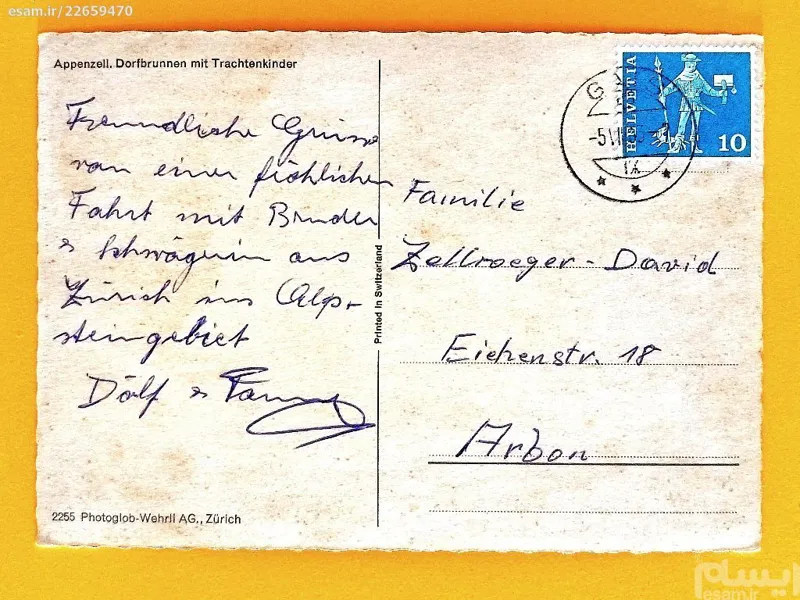 esam.ir/22659470
Appenzell. Dorfbrunnen mit Trachtenkinder
Freundliche Grüsse
von einer fröhlichen
Fahrt mit Bruder
& Schwägerin aus
Zürich ins Alp-
steingebiet
Dölf &
2255 Photoglob-Wehrli AG., Zürich
Printed in Switzerland
HELVETIA
10
Familie
Zellweger-David
Eichenstr. 18
Arbon
ایسام
esam.ir